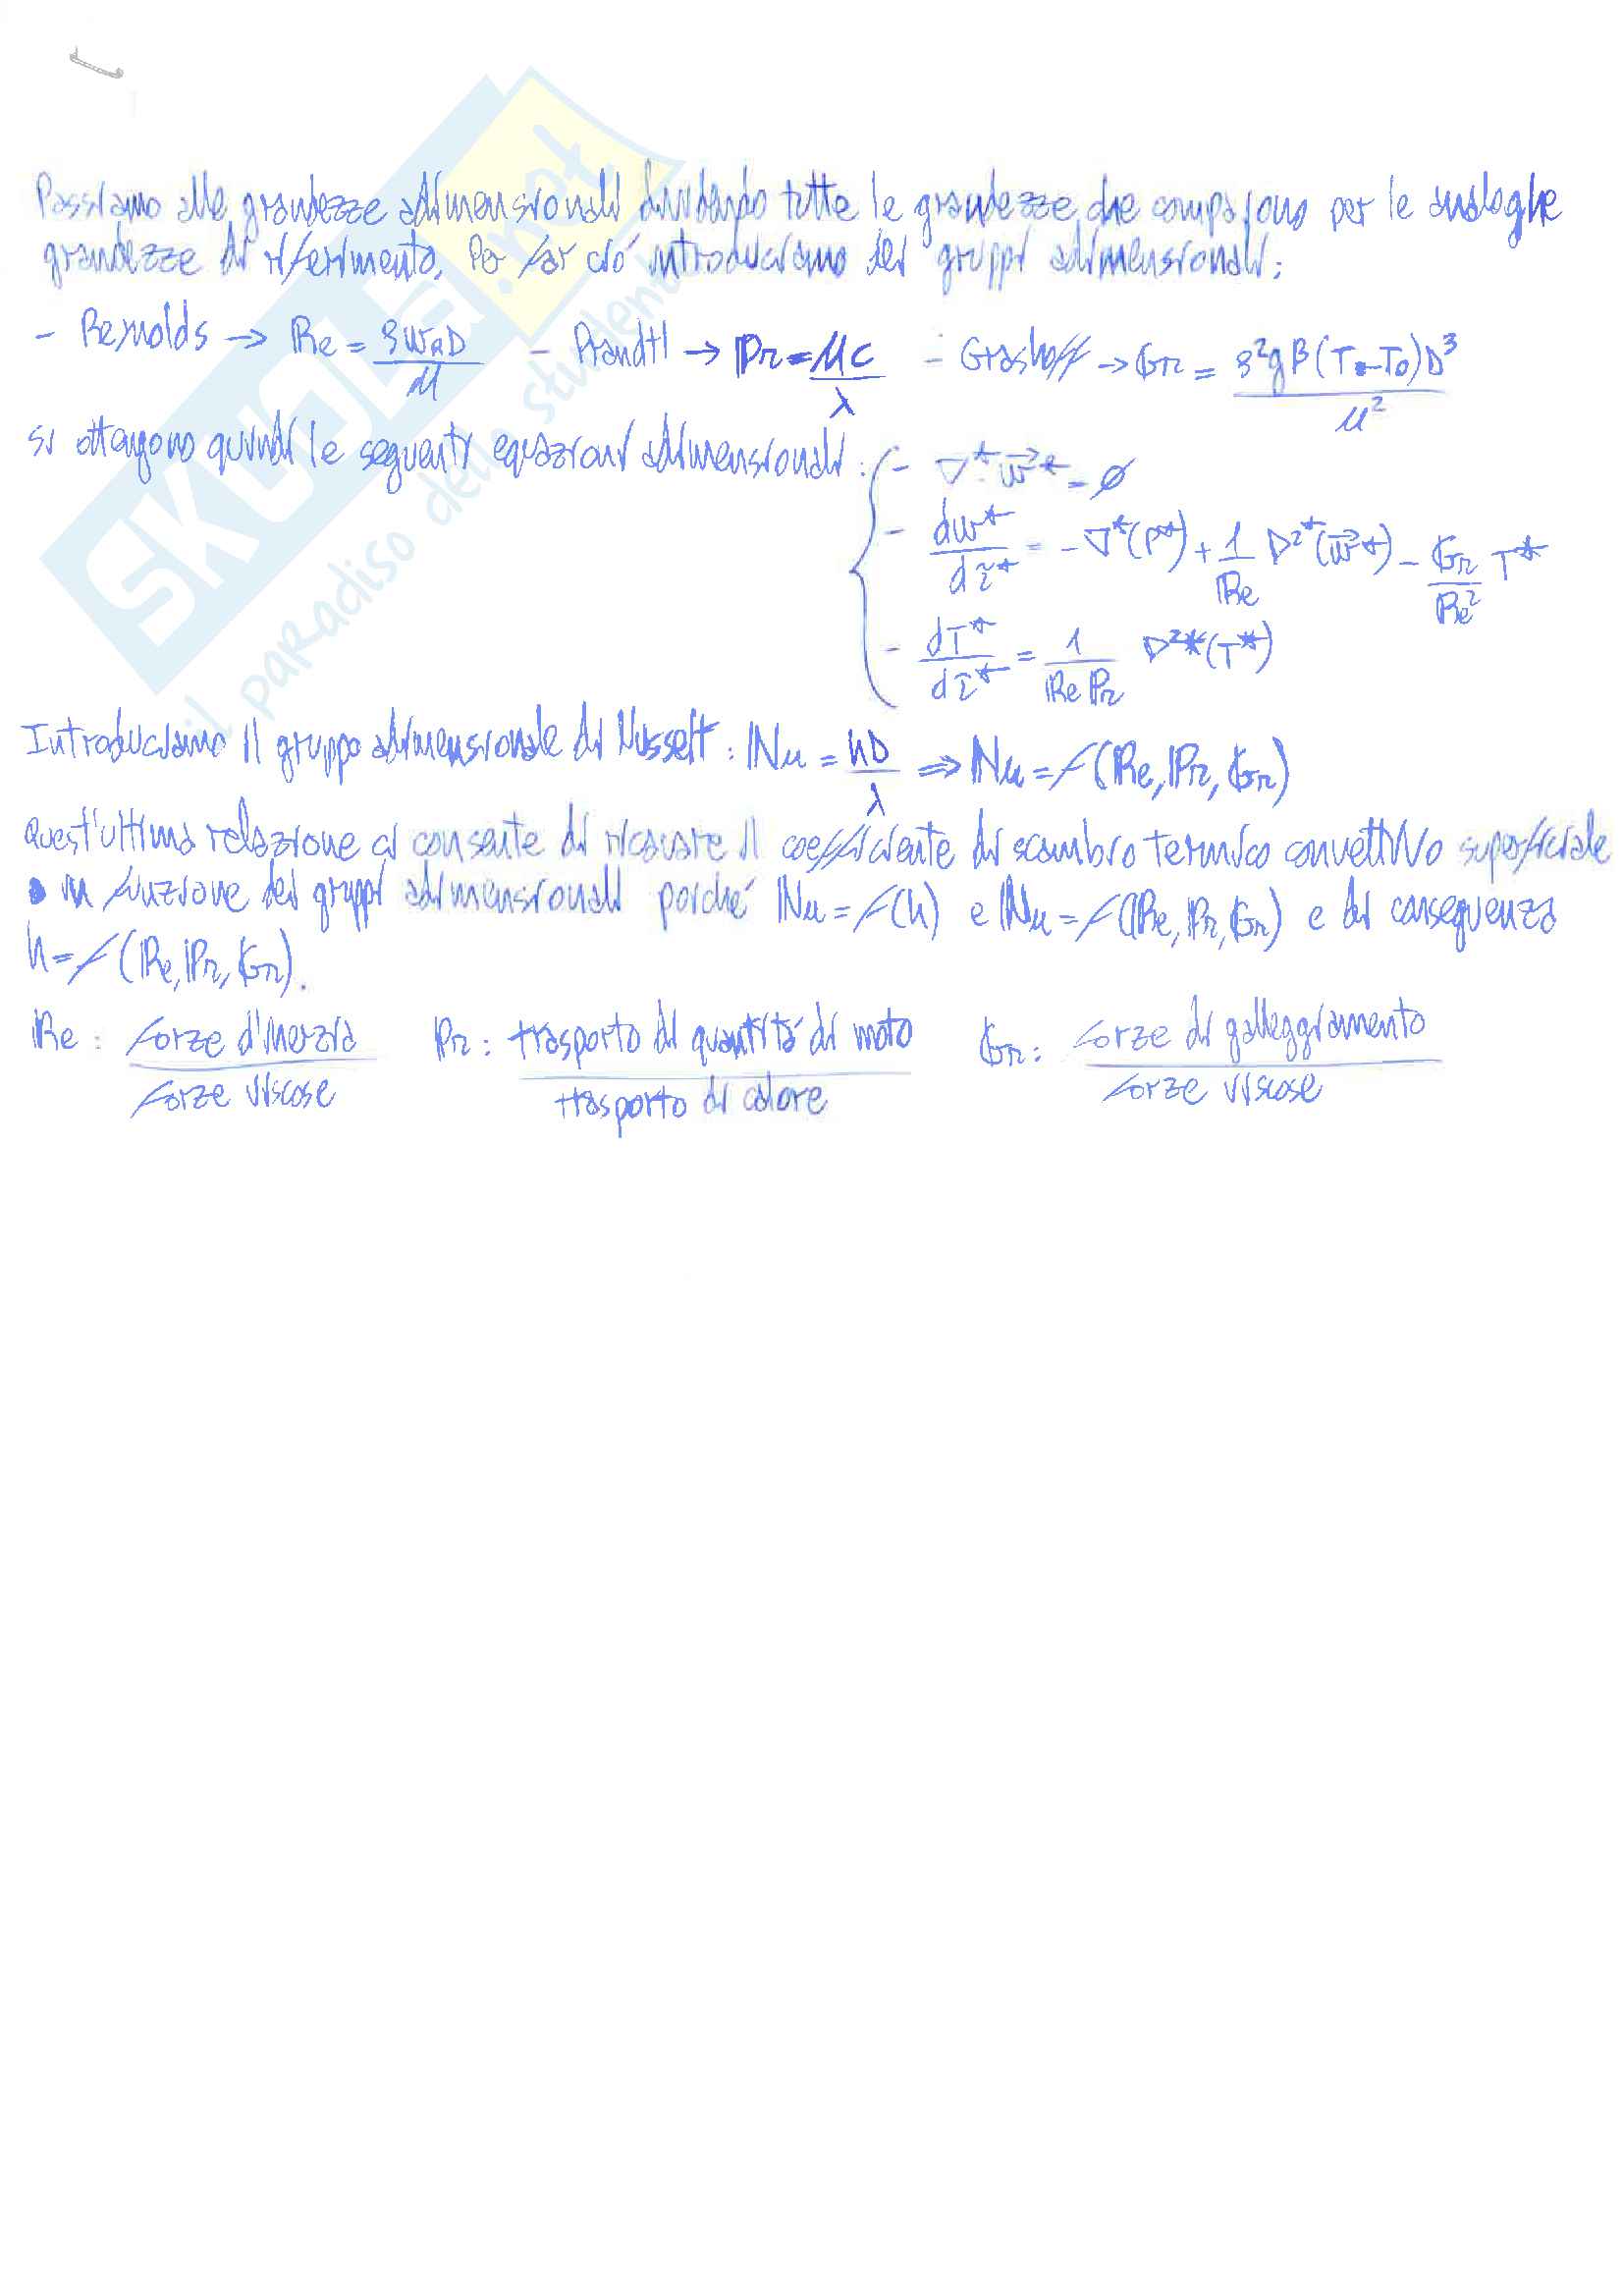 Passiamo alle grandezze adimensionali dividendo tutte le grandezze che compaiono per le analoghe
grandezze di riferimento. Per far ciò introduciamo dei gruppi adimensionali:
- Reynolds → Re = ρ w_R D / μ - Prandtl → Pr = μc / λ - Grashoff → Gr = ρ² g β (T - T₀) D³ / μ²
si ottengono quindi le seguenti equazioni adimensionali: { - ∇*·w⃗* = ∅
- dw*/dτ* = -∇*(P*) + 1/Re ∇²*(w⃗*) - Gr/Re² T*
- dT*/dτ* = 1/(Re Pr) ∇²*(T*)
Introduciamo il gruppo adimensionale di Nusselt: Nu = hD/λ ⇒ Nu = f(Re, Pr, Gr)
Quest'ultima relazione ci consente di ricavare il coefficiente di scambio termico convettivo superficiale
in funzione dei gruppi adimensionali poiché Nu = f(h) e Nu = f(Re, Pr, Gr) e di conseguenza
h = f(Re, Pr, Gr).
Re: forze d'inerzia / forze viscose Pr: trasporto di quantità di moto / trasporto di calore Gr: forze di galleggiamento / forze viscose
SKUOLA.net
il paradiso dello studente